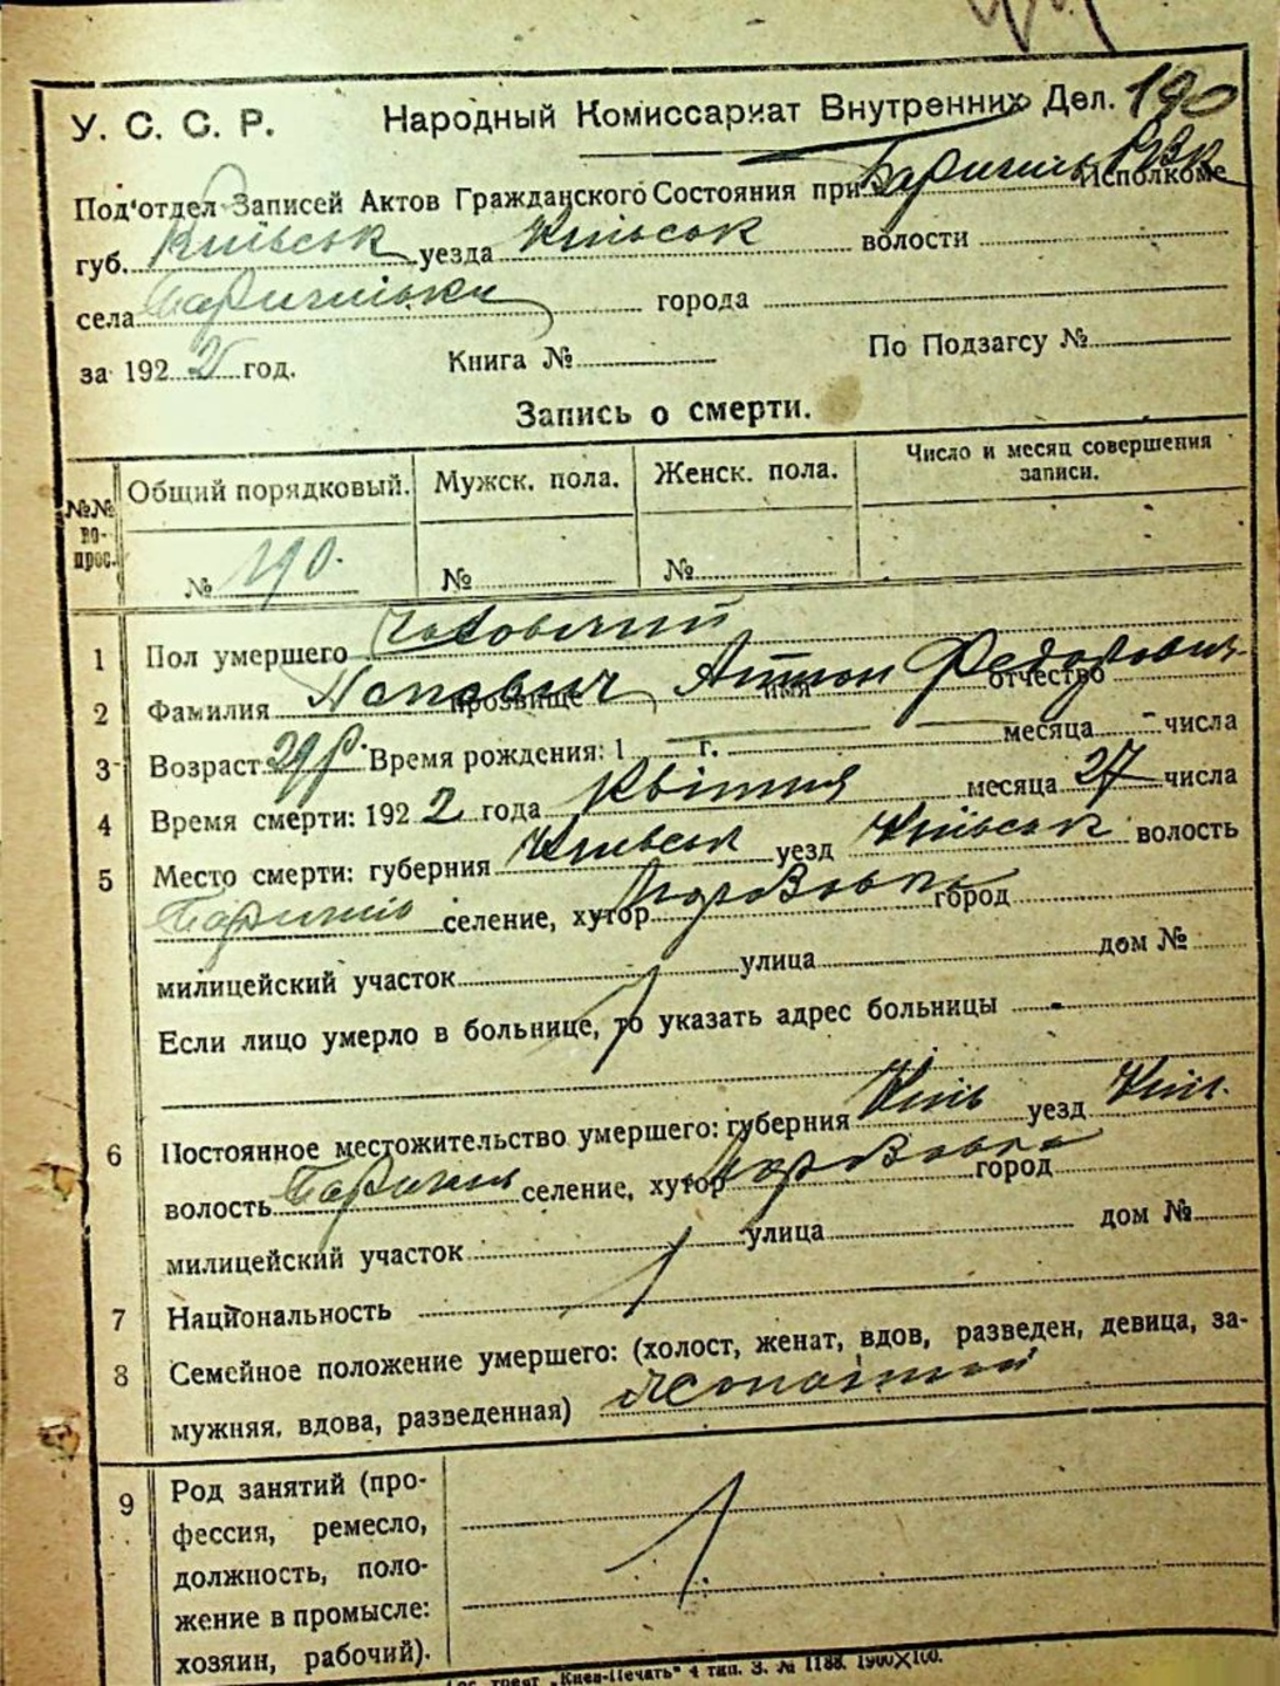 190
У. С. С. Р. Народный Комиссариат Внутренних Дел.
Под'отдел Записей Актов Гражданского Состояния при РВК Исполкоме
губ. Київськ уезда Київськ волости
села города
за 192 год. Книга № По Подзагсу №
Запись о смерти.
№№ во-прос. Общий порядковый. Мужск. пола. Женск. пола. Число и месяц совершения записи.
№ 190. № №
1 Пол умершего Чоловічий
2 Фамилия Попович прозвище имя Антон отчество Федорович
3 Возраст 29 р. Время рождения: 1 г. месяца - числа
4 Время смерти: 1922 года Квітня месяца 27 числа
5 Место смерти: губерния Київськ уезд Київськ волость
селение, хутор город
милицейский участок улица дом №
Если лицо умерло в больнице, то указать адрес больницы -
6 Постоянное местожительство умершего: губерния Київ уезд Київ.
волость селение, хутор город
милицейский участок улица дом №
7 Национальность
8 Семейное положение умершего: (холост, женат, вдов, разведен, девица, за-
мужняя, вдова, разведенная)
9 Род занятий (про-
фессия, ремесло,
должность, поло-
жение в промысле:
хозяин, рабочий).
трест „Киев-Печать" 4 тип. З. № 1188. 1900X100.